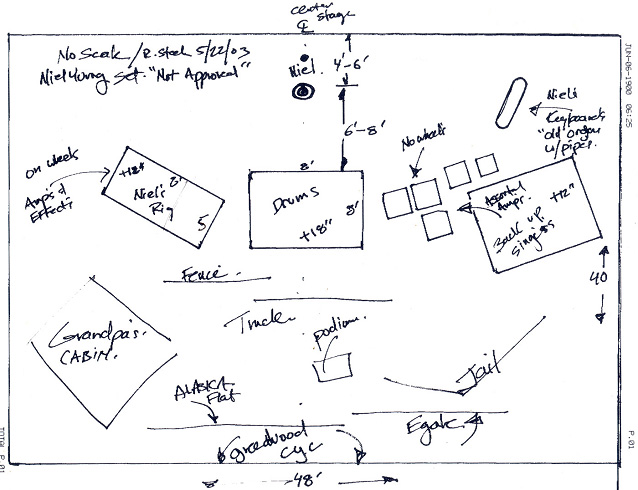 center
stage
℄
No Scale / R. Steel 5/22/03
Niel Young Set. "Not Approved"
Niel.
4'-6'
6'-8'
JUN-06-1900 06:25
Niel's
Keyboards
"old organ
w/pipes.
No wheels
on wheels
Amps &
Effects
+12"
8'
Niel's
Rig
5
8'
Drums
8'
+18"
Assorted
Amps.
Back up
singers
+12"
40
Fence.
Truck.
podium.
Grandpa's.
CABIN.
Jail
ALASKA
Flat
Greedwood
cyc
48'
P.01
TOTAL P.01